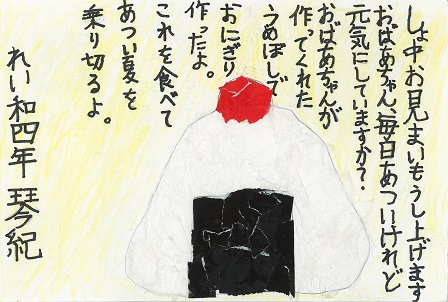 しょ中お見まいもうし上げます
おばあちゃん、毎日あついけれど
元気にしていますか？
おばあちゃんが
作ってくれた
うめぼしで
おにぎり
作ったよ。
これを食べて
あつい夏を
乗り切るよ。
れい和四年 琴紀